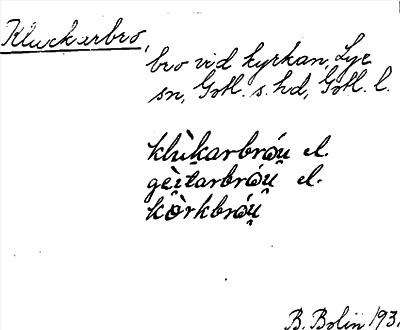 Kluckarbro,
bro vid kyrkan, Lye
sn, Gotl. s. hd, Gotl. l.
klùkarbróu̯ el.
gèi̯tarbróu̯ el.
kò̤rkbróu̯
B. Bolin 193